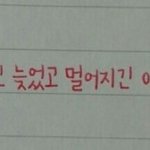 늦었고 멀어지긴